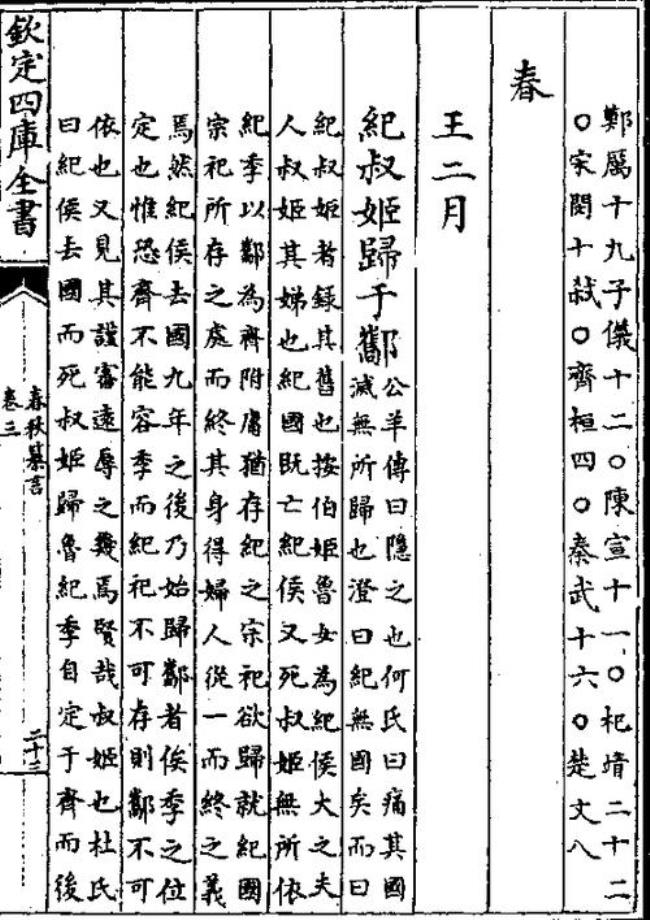 鄭厲十九子儀十二○陳宣十一○杞靖二十二
○宋閔十弒○齊桓四○秦武十六○楚文八
春
王二月
紀叔姬歸于酅
公羊傳曰隱之也何氏曰痛其國
滅無所歸也澄曰紀無國矣而曰
紀叔姬者録其舊也按伯姬魯女為紀侯大之夫
人叔姬其娣也紀國既亡紀侯又死叔姬無所依
紀季以酅為齊附庸猶存紀之宗祀欲歸就紀國
宗祀所存之處而終其身得婦人從一而終之義
焉然紀侯去國九年之後乃始歸酅者俟季之位
定也惟恐齊不能容季而紀祀不可存則酅不可
依也又見其謹審遠辱之幾焉賢哉叔姬也杜氏
曰紀侯去國而死叔姬歸魯紀季自定于齊而後
欽定四庫全書
春秋纂言
卷三
二十三